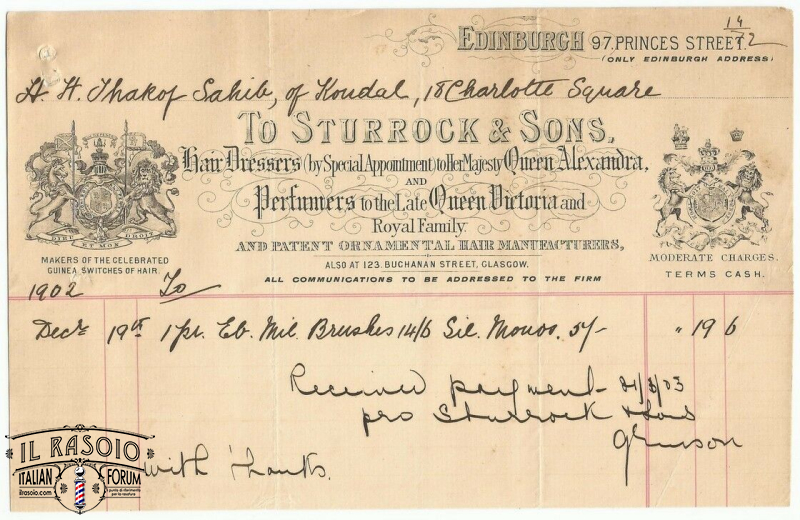 14
72
EDINBURGH 97, PRINCES STREET.
(ONLY EDINBURGH ADDRESS)
H. H. Thakof Sahib, of Kondal, 18 Charlotte Square
TO STURROCK & SONS,
Hair Dressers (by Special Appointment) to Her Majesty Queen Alexandra,
AND
Perfumers to the Late Queen Victoria and
Royal Family.
AND PATENT ORNAMENTAL HAIR MANUFACTURERS,
ALSO AT 123, BUCHANAN STREET, GLASGOW.
ALL COMMUNICATIONS TO BE ADDRESSED TO THE FIRM
DIEU ET MON DROIT
MAKERS OF THE CELEBRATED
GUINEA SWITCHES OF HAIR.
MODERATE CHARGES.
TERMS CASH.
1902 To
Decr 19th 1 pr. Eb. Mil. Brushes 14/6 Sil. Monos. 5/- " 19 6
Received payment
pro Sturrock & Sons
with thanks.
IL RASOIO
ITALIAN FORUM
ilrasoio.com
punto di riferimento
per la rasatura